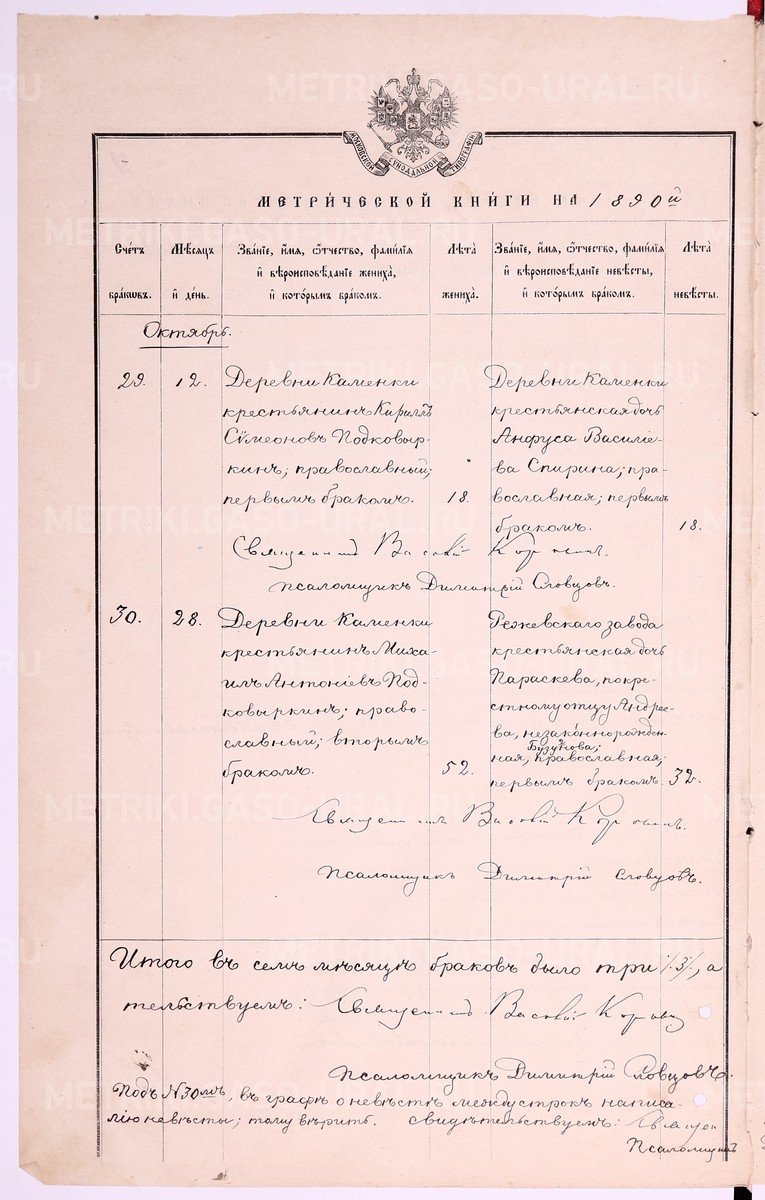 METRIKI.GASO-URAL.RU
МОСКОВСКОЙ СѴНОДАЛЬНОЙ ТИПОГРАФІИ
МЕТРИ́ЧЕСКОЙ КНИ́ГИ НА 1890й
Сче́тъ бра́кѡвъ.
Мѣ́сяцъ и́ де́нь.
Зва́нїе, и́мя, ѻ҆́тчество, фами́лїя и҆ вѣроисповѣ́данїе жениха̀, и҆ кото́рымъ бра́комъ.
Лѣ́та жениха̀.
Зва́нїе, и́мя, ѻ҆́тчество, фами́лїя и҆ вѣроисповѣ́данїе невѣ́сты, и҆ кото́рымъ бра́комъ.
Лѣ́та невѣ́сты.
Октябрь.
29.
12.
Деревни Каменки
крестьянинъ Кириллъ
Сѵмеоновъ Подковыр-
кинъ; православный;
первымъ бракомъ.
18.
Деревни Каменки
крестьянская дочь
Анфуса Василіе-
ва Спирина; пра-
вославная; первымъ
бракомъ.
18.
Священникъ Василій
Псаломщикъ Димитрій Словцовъ.
30.
28.
Деревни Каменки
крестьянинъ Миха-
илъ Антоніевъ Под-
ковыркинъ; право-
славный; вторымъ
бракомъ.
52.
Режевскаго завода
крестьянская дочь
Параскева, по кре-
стному отцу Андрее-
ва, незаконнорожден-
Бузунова;
ная, православная;
первымъ бракомъ.
32.
Священникъ Василій
Псаломщикъ Димитрій Словцовъ.
Итого въ семъ мѣсяцѣ браковъ было три /:3:/, а
тельствуемъ: Священникъ Василій
Псаломщикъ Димитрій Словцовъ.
Подъ №30мъ, въ графѣ о невѣстѣ между строкъ написа-
лію невѣсты; тому вѣрить. Свидѣтельствуемъ: Священ
Псаломщикъ